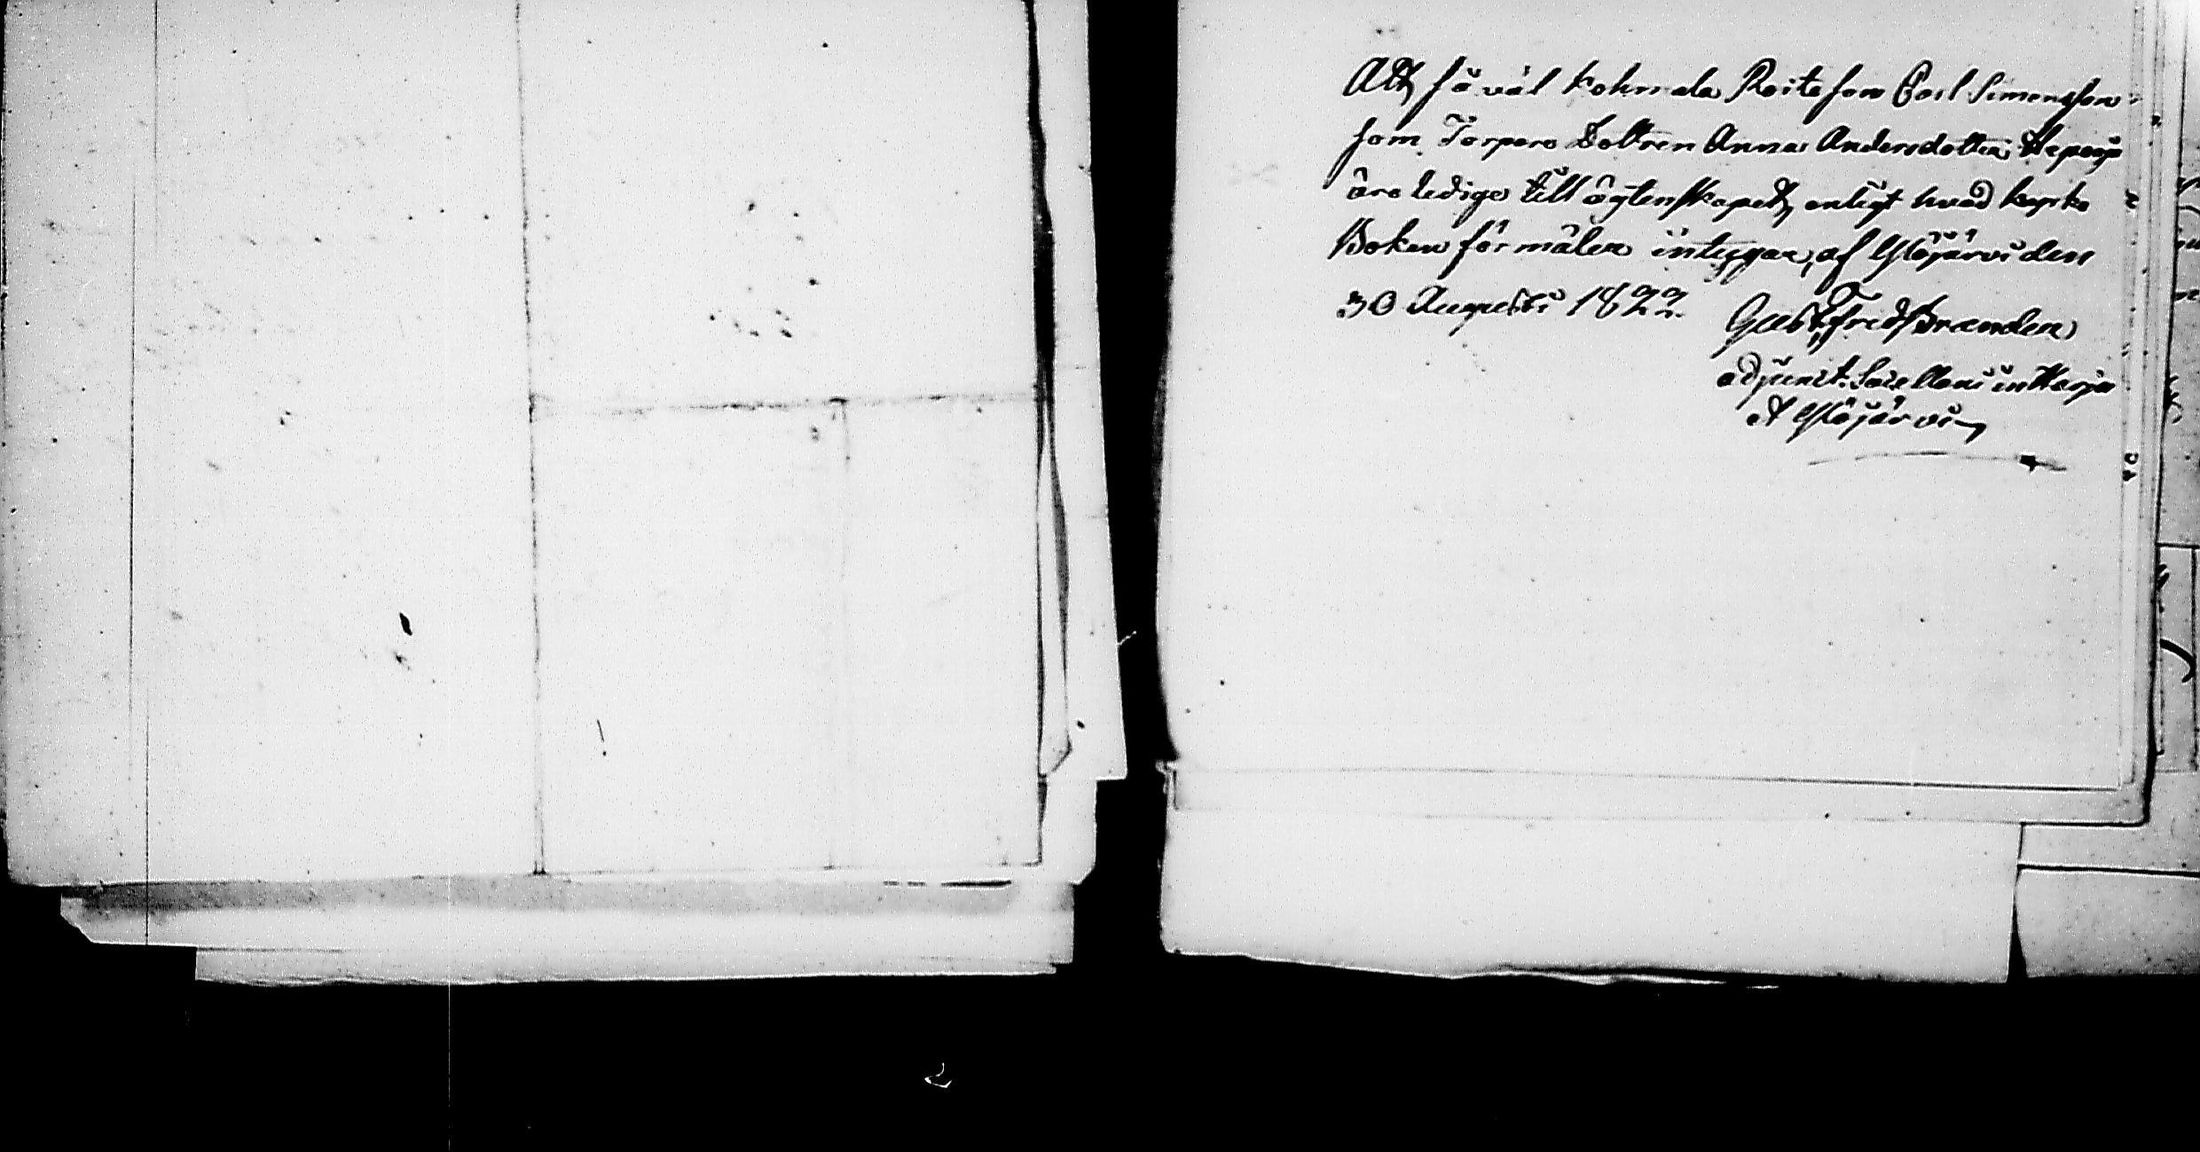 Att så väl kohmala Roite son Carl Simonsson
som Torpare Dottren Anna Andersdotter Heposo
äro ledige till ägtenskapet, enligt hvad kyrko
Boken för mäler intygar, af Ylöjärvi den
30 Augusti 1822.
Gust. Frid. Branden
adjunct. Sacellani in Harju
et Ylöjärvi